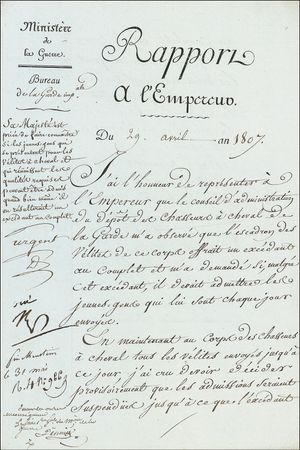 Ministère
de la Guerre.
Bureau
de la Garde imp.ale
Rapport
A l'Empereur.
Du 29 avril an 1807.
Sa Majesté est
priée de faire connaître
si les jeunes gens qui
se présentent pour les
vélites à cheval et
qui réunissent les
qualités requises
peuvent être admis
quand bien même il
en résulterait un
excédant au complet
J'ai l'honneur de représenter à
l'Empereur que le conseil d'administration
du dépôt des chasseurs à cheval de
la Garde m'a observé que l'escadron des
Vélites de ce corps offrait un excédant
au Complet et m'a demandé si, malgré
cet excédant, il devait admettre les
jeunes gens qui lui sont chaque jour
envoyés.
En maintenant au corps des chasseurs
à cheval tous les velites envoyés jusqu'à
ce jour j'ai cru devoir décider
provisoirement que les admissions seraient
suspendues jusqu'à ce que l'excédant
urgent
31 mai